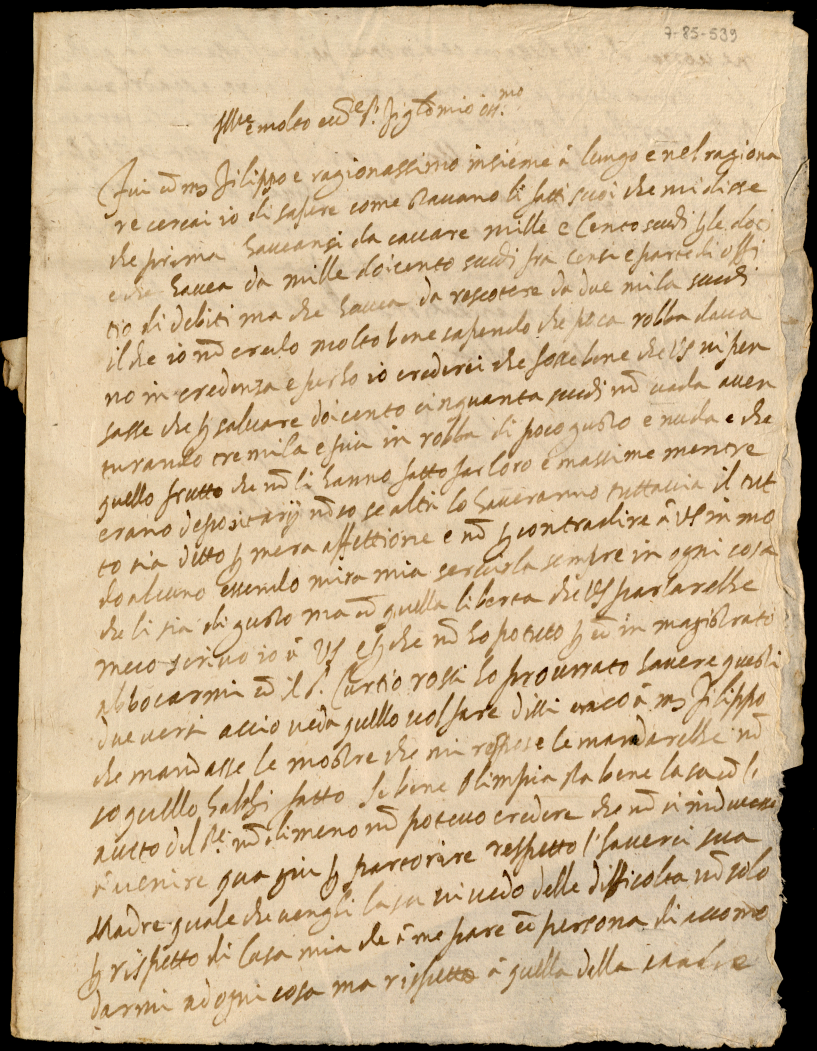 7-85-539
Ill.re e molto ecc.te S.r figl.o mio oss.mo
Fui cō ms Filippo e ragionassimo insieme à lungo e nel ragiona
re cercai io di sapere come stavano li fatti suoi che mi disse
che prima haveansi da cavare mille e Cento scudi
e che havea da mille doicento scudi fra censi e parte di offi
tio di debiti ma che havea da rescotere da due mila scudi
il che io nō credo molto bene sapendo che poca robba dava
no in credenza e perho io crederei che fosse bene che VS vi pen
sasse che p salvare doicento cinquanta scudi nō vada aven
turando tre mila e piu in robba di poco gusto e nuda e che
quello frutto che nō li hanno fatto far loro e massime mentre
erano depositarij nō so se altri lo haveranno tuttavia il tut
to sia ditto p mera affettione e nō p contradire à VS in mo
do alcuno essendo mira mia servirla sempre in ogni cosa
che li sia di gusto ma cō quella liberta che VS parlarebbe
meco scrivo io à VS e p che nō ho potuto p eē in magistrato
abbocarmi cō il S. Curtio rossi ho procurato havere questi
due versi accio veda quello vol fare dissi anco à ms Filippo
che mandasse le mostre che mi rispose le mandarebbe nō
so quello habbi fatto se bene Olimpia sta bene la sa cō l'
aiuto del S.r nō dimeno nō potevo credere che nō si inducesse
à venire qua giu p partorire respetto l'haverci sua
Madre quale che vengli la su vi vedo delle difficolta nō solo
p rispetto di Casa mia che à me pare eē persona di accomo
darmi ad ogni cosa ma rispetto à quella della